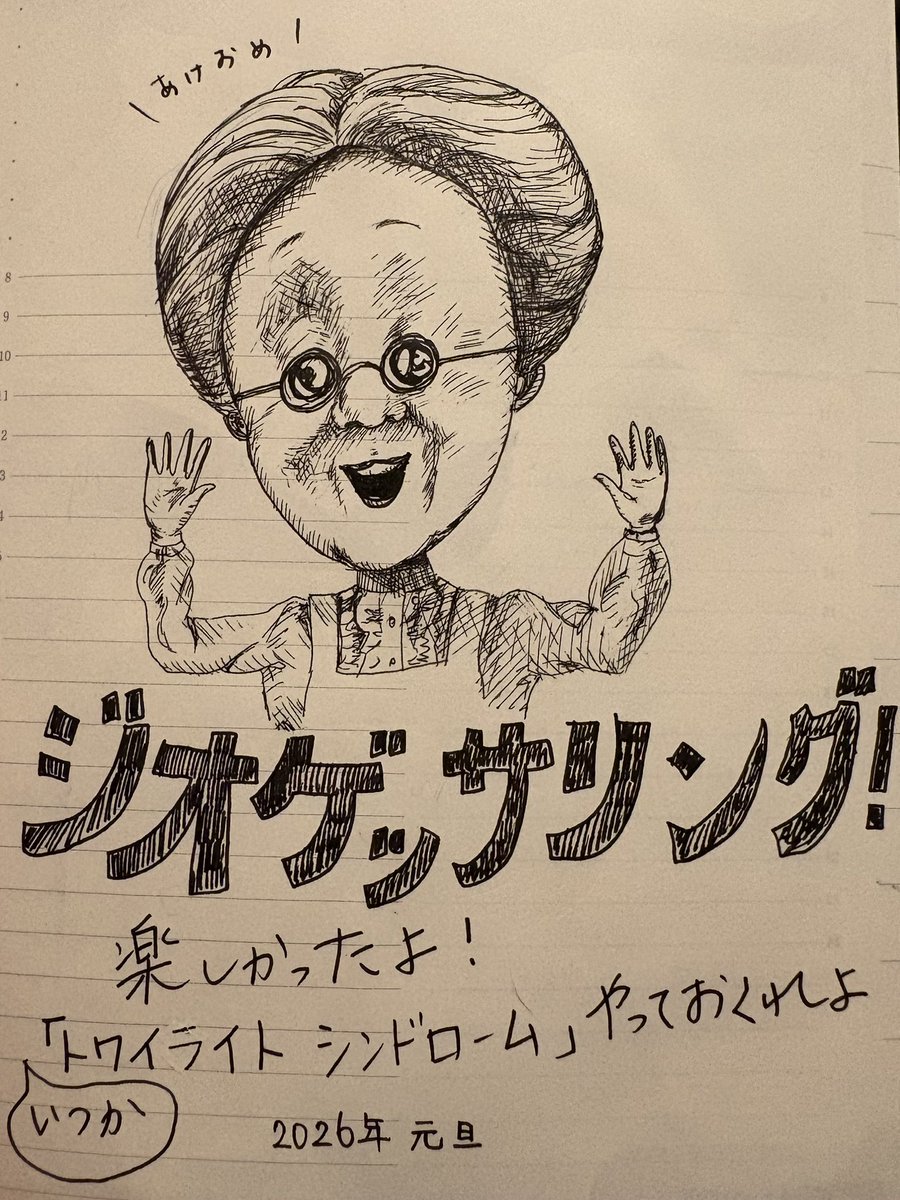 あけおめ！
8
9
10
11
2
3
4
ジオゲッサリング！
楽しかったよ！
「トワイライト シンドローム」やっておくれよ
いつか
2026年 元旦